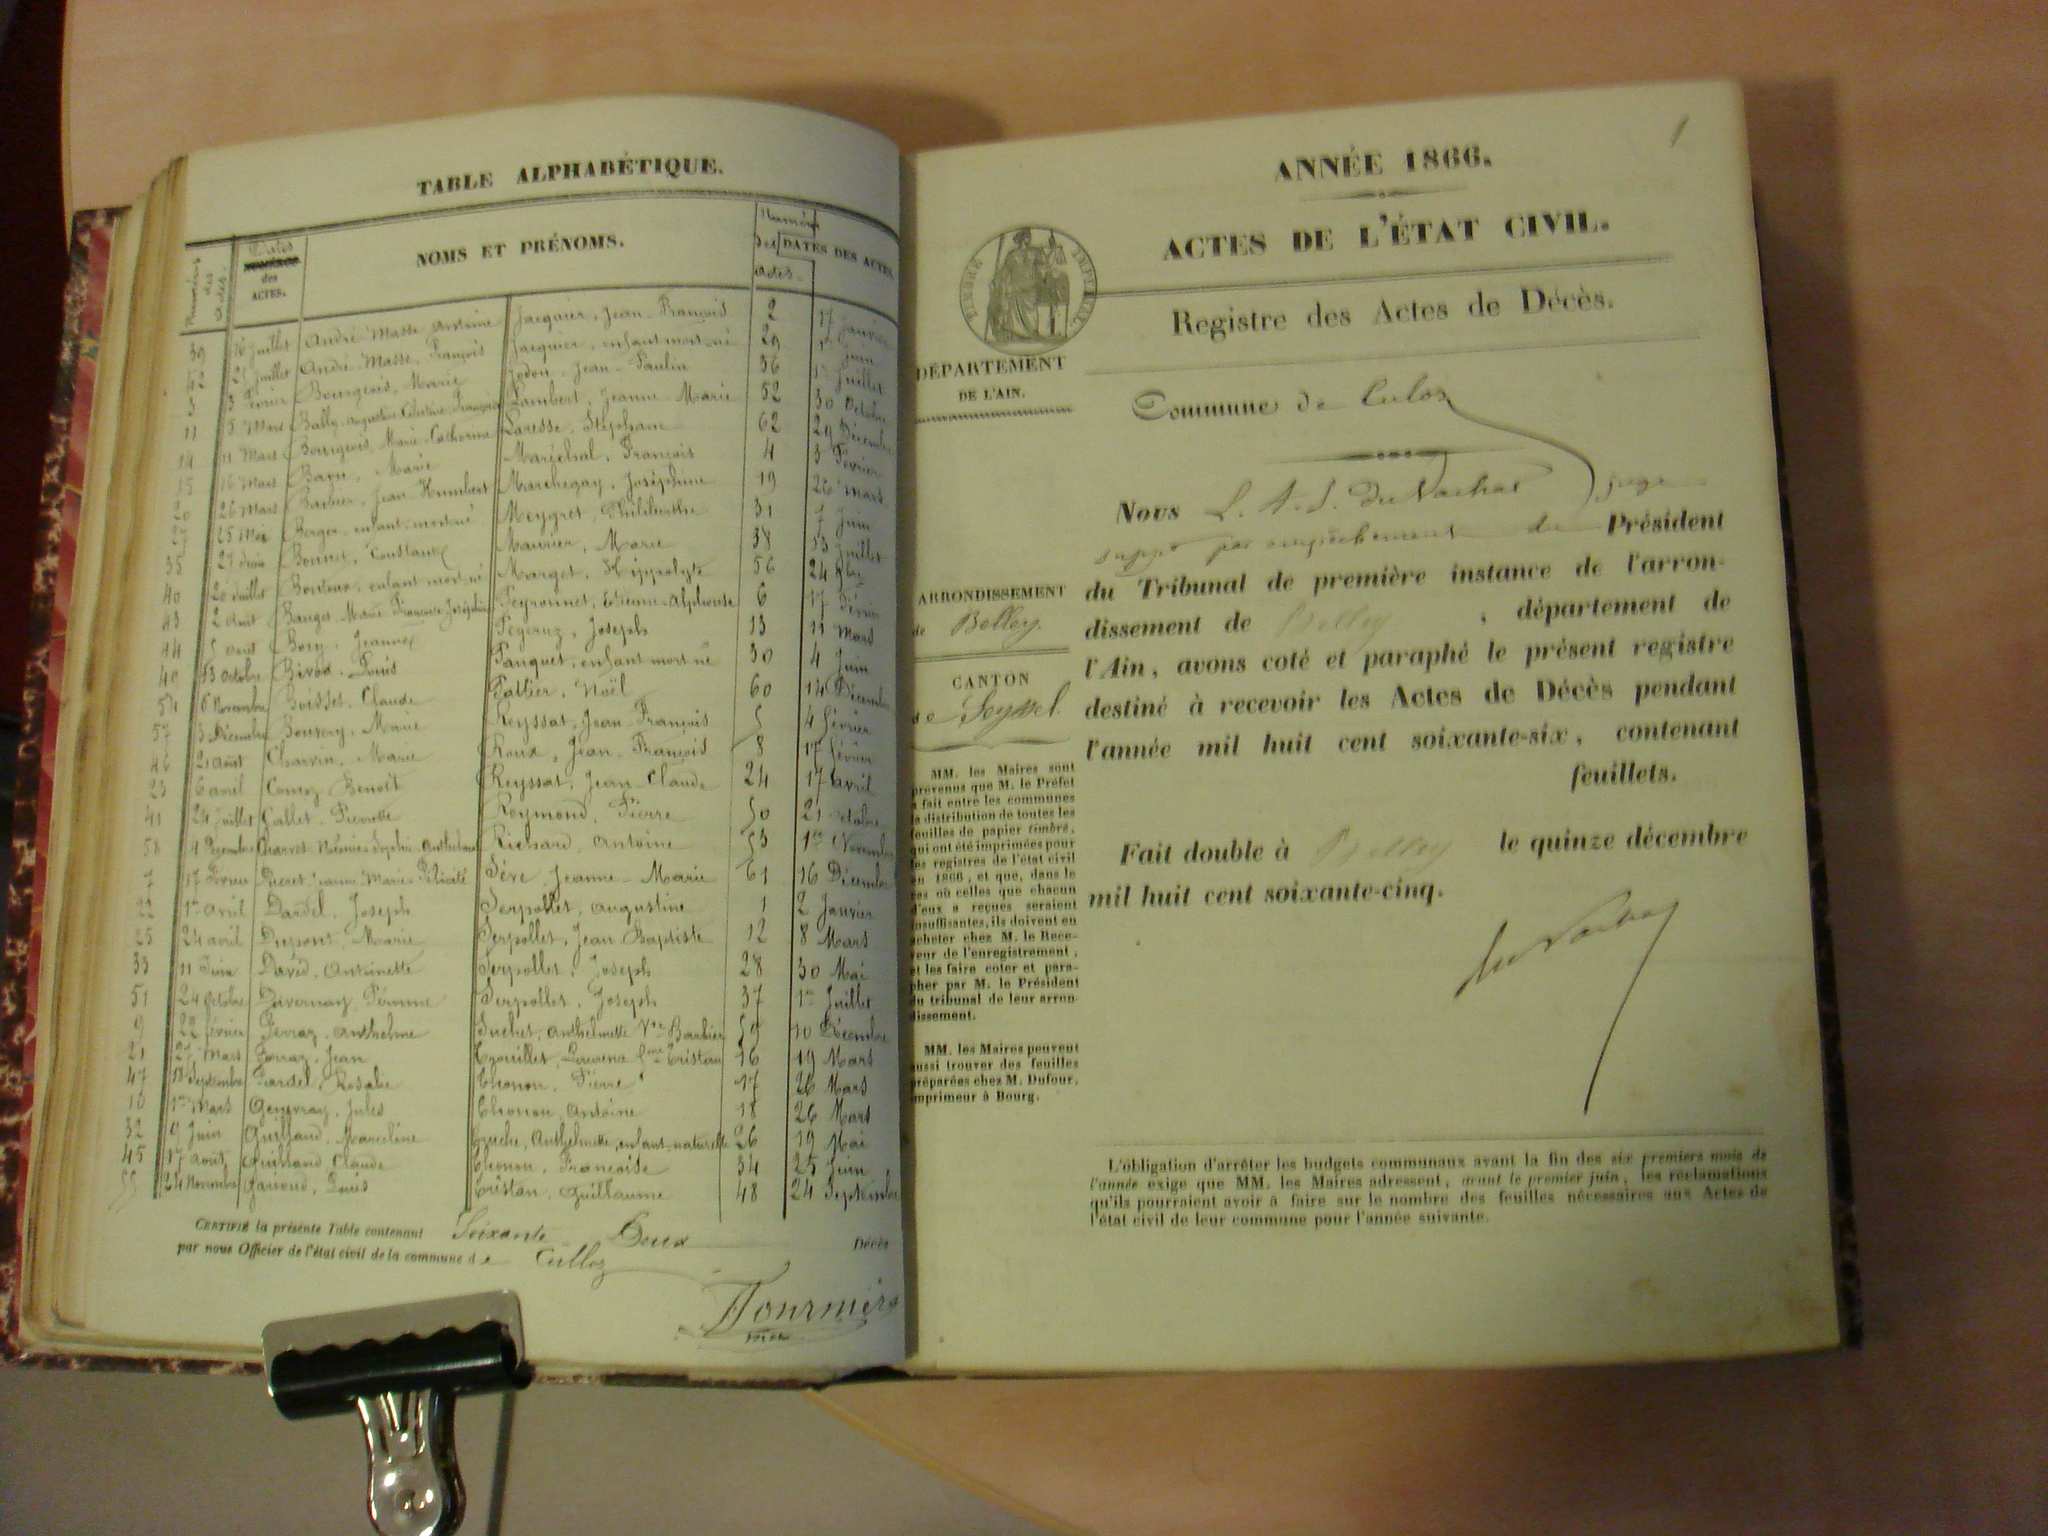 TABLE ALPHABÉTIQUE.
Numéros des actes.
Dates des ACTES.
NOMS ET PRÉNOMS.
Numéros des actes.
DATES DES ACTES.
39 16 Juillet André Masse Antoine
42 21 Juillet André Masse, François
3 3 Février Bourgeois, Marie
11 5 Mars Bally
14 11 Mars Bourgeois, Marie Catherine
15 16 Mars Marie
20 26 Mars Barbier, Jean Humbert
27 25 Mai Berger enfant mort-né
35 27 Juin Bonnet, Constant
40 20 Juillet enfant mort-né
43 2 Août Marie Françoise Joséphine
44 5 août Bory, Jeanne
49 13 Octobre Louis
54 6 Novembre Boisset, Claude
57 3 Décembre Marie
46 21 août Charvin, Marie
23 6 avril Benoît
41 24 Juillet Collet, Pierrette
58 4 Décembre Charvet
7 17 Février Jeanne Marie Félicité
22 1er avril Dardel, Joseph
25 24 avril Dupont, Marie
33 11 Juin David, Antoinette
51 24 Octobre
9 22 février Ferraz, Anthelme
21 27 Mars Ferraz, Jean
47 Septembre Rosalie
10 1er Mars Genevray, Jules
32 9 Juin Guilland, Marceline
45 17 Août Guilland Claude
55 24 Novembre Louis
Jacquier, Jean-François 2 17 Janvier
Jacquier, enfant mort-né 29 1er Juin
Jodon, Jean-Paulin 36 1er Juillet
Lambert, Jeanne-Marie 52 30 Octobre
Laresse, Stéphane 62 29 Décembre
Maréchal, François 4 3 Février
Marchegay, Joséphine 19 26 Mars
Meygret, Philiberthe 31 7 Juin
Maurier, Marie 38 13 Juillet
Marget, Hippolyte 56 24
Peyronnet, Etienne-Alphonse 6 17 Février
Joseph 13 11 Mars
Panquet, enfant mort-né 30 4 Juin
Noël 60 14 Décembre
Reyssat, Jean-François 5 4 Février
Roux, Jean-François 8 17 Février
Reyssat, Jean Claude 24 17 Avril
Reymond, Pierre 50 21 Octobre
Richard, Antoine 53 1er Novembre
Sève, Jeanne-Marie 61 16 Décembre
Serpollet, Augustine 1 2 Janvier
Serpollet, Jean Baptiste 12 8 Mars
Serpollet, Joseph 28 30 Mai
Serpollet, Joseph 37 1er Juillet
Suchet, Anthelmette Vve Barbier 59 10 Décembre
fme Tristan 16 19 Mars
Thonon, Pierre 17 26 Mars
Thonon, Antoine 18 26 Mars
Truche, Anthelmette, enfant naturelle 26 19 Mai
Thonon, Françoise 34 25 Juin
Tristan, Guillaume 48 24 Septembre
CERTIFIÉ la présente Table contenant Soixante Deux Décès
par nous Officier de l'état civil de la commune de Culloz
Fournier
1
ANNÉE 1866.
ACTES DE L'ÉTAT CIVIL.
TIMBRE IMPÉRIAL
Registre des Actes de Décès.
DÉPARTEMENT
DE L'AIN.
Commune de Culoz
Nous L. A. J. juge
par empêchement de Président
du Tribunal de première instance de l'arron-
dissement de Belley, département de
l'Ain, avons coté et paraphé le présent registre
destiné à recevoir les Actes de Décès pendant
l'année mil huit cent soixante-six, contenant
feuillets.
Fait double à Belley le quinze décembre
mil huit cent soixante-cinq.
ARRONDISSEMENT
de Belley.
CANTON
de Seyssel.
MM. les Maires sont
prévenus que M. le Préfet
a fait entre les communes
la distribution de toutes les
feuilles de papier timbré,
qui ont été imprimées pour
les registres de l'état civil
en 1866, et que, dans le
cas où celles que chacun
d'eux a reçues seraient
insuffisantes, ils doivent en
acheter chez M. le Rece-
veur de l'enregistrement,
et les faire coter et para-
pher par M. le Président
du tribunal de leur arron-
dissement.
MM. les Maires peuvent
aussi trouver des feuilles
préparées chez M. Dufour,
imprimeur à Bourg.
L'obligation d'arrêter les budgets communaux avant la fin des six premiers mois de
l'année exige que MM. les Maires adressent, avant le premier juin, les réclamations
qu'ils pourraient avoir à faire sur le nombre des feuilles nécessaires aux Actes de
l'état civil de leur commune pour l'année suivante.